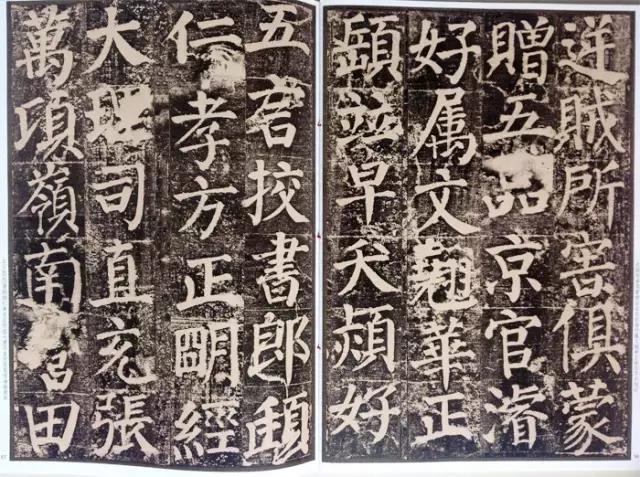 逆賊所害俱蒙
贈五品京官濬
好属文翹華正
顗並早夭熲好
五言挍書郎頲
仁孝方正眀經
大理司直充張
萬頃嶺南田